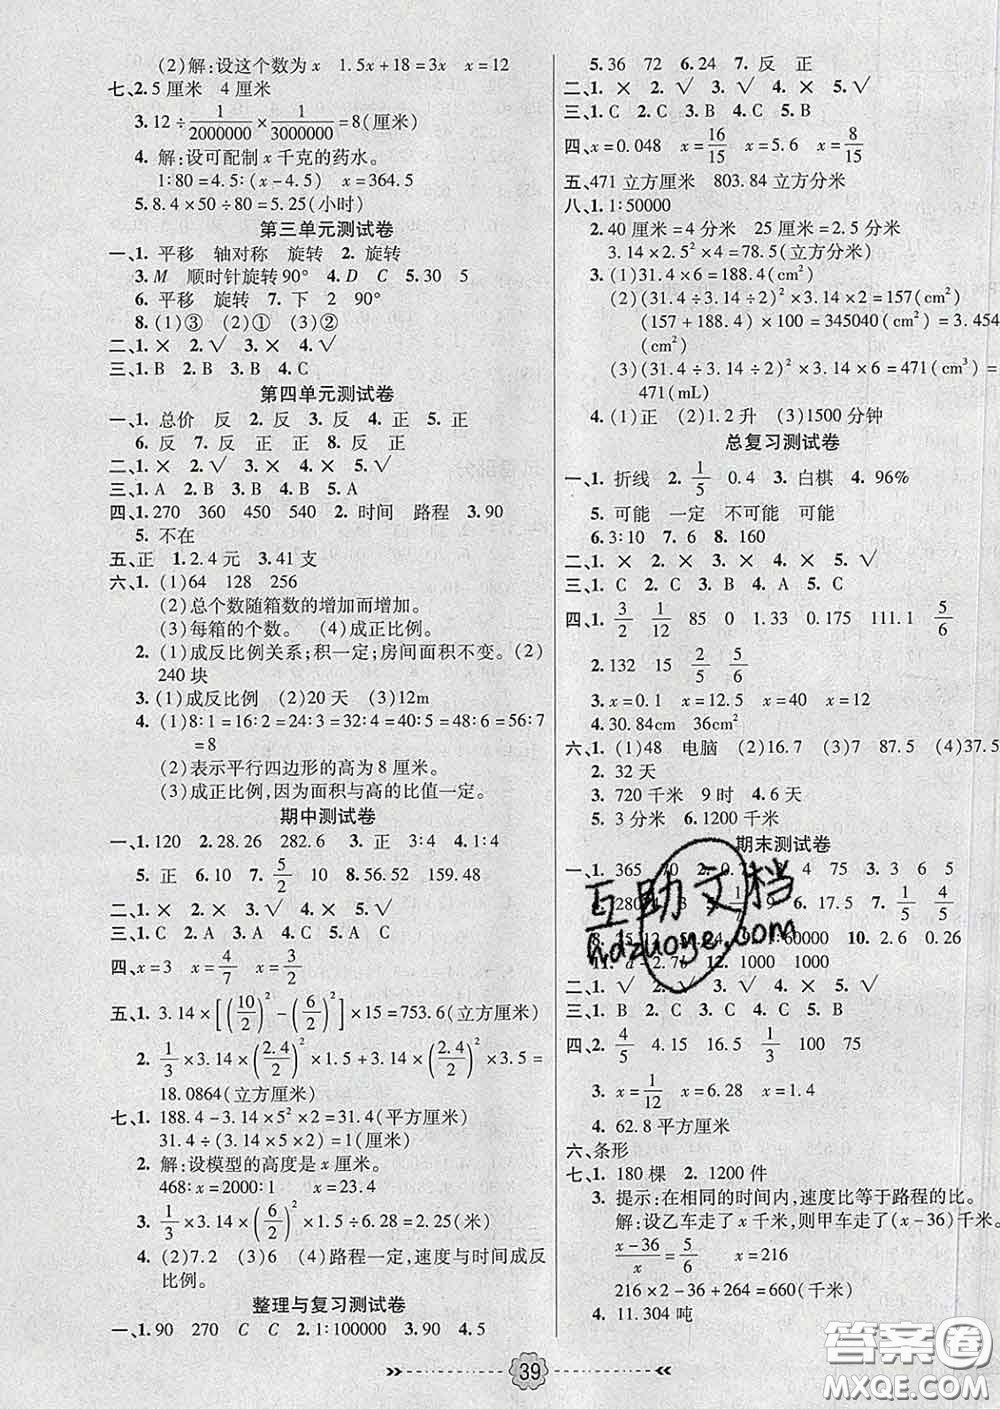 (2)解:设这个数为x 1.5x+18=3x x=12
七、2.5厘米 4厘米
3.12÷1/2000000×1/3000000=8(厘米)
4. 解:设可配制x千克的药水。
1∶80=4.5∶(x-4.5) x=364.5
5.8.4×50÷80=5.25(小时)
第三单元测试卷
一、1. 平移 轴对称 旋转 2. 旋转
3.M 顺时针旋转90° 4.D C 5.30 5
6. 平移 旋转 7. 下 2 90°
8.(1)③ (2)① (3)②
二、1.× 2.√ 3.× 4.√
三、1.B 2.B 3.B 4.C
第四单元测试卷
一、1. 总价 反 2. 反 3. 反 4. 正 5. 正
6. 反 7. 反 正 正 8. 正 反 反
二、1.× 2.√ 3.× 4.× 5.√
三、1.A 2.B 3.B 4.B 5.A
四、1.270 360 450 540 2. 时间 路程 3.90
5. 不在
五、正 1.2.4元 3.41支
六、1.(1)64 128 256
(2)总个数随箱数的增加而增加。
(3)每箱的个数。 (4)成正比例。
2.(1)成反比例关系;积一定;房间面积不变。(2)
240块
3.(1)成反比例 (2)20天 (3)12m
4.(1)8∶1=16∶2=24∶3=32∶4=40∶5=48∶6=56∶7
=8
(2)表示平行四边形的高为8厘米。
(3)成正比例,因为面积与高的比值一定。
期中测试卷
一、1.120 2.28.26 282.6 3. 正 3∶4 4.1∶4
5. 正 6.10 7. 5/2 10 8.56.52 159.48
二、1.× 2.× 3.√ 4.√ 5.√
三、1.C 2.A 3.A 4.A 5.C 6.C
四、x=3 x=4/7 x=3/2
五、1.3.14×[(10/2)²-(6/2)²]×15=753.6(立方厘米)
2. 1/3×3.14×(2.4/2)²×1.5+3.14×(2.4/2)²×3.5=
18.0864(立方厘米)
七、1.188.4-3.14×5²×2=31.4(平方厘米)
31.4÷(3.14×5×2)=1(厘米)
2. 解:设模型的高度是x厘米。
468∶x=2000∶1 x=23.4
3. 1/3×3.14×(6/2)²×1.5÷6.28=2.25(米)
4.(2)7.2 (3)6 (4)路程一定,速度与时间成反
比例。
整理与复习测试卷
一、1.90 270 C C 2.1∶100000 3.90 4.5
5.36 72 6.24 7. 反 正
二、1.× 2.√ 3.√ 4.× 5.√
三、1.C 2.C 3.B 4.C 5.B
四、x=0.048 x=16/15 x=5.6 x=8/15
五、471立方厘米 803.84立方分米
八、1.1∶50000
2.40厘米=4分米 25厘米=2.5分米
3.14×2.5²×4=78.5(立方分米)
3.(1)31.4×6=188.4(cm²)
(2)(31.4÷3.14÷2)²×3.14×2=157(cm²)
(157+188.4)×100=345040(cm²)=3.454
(3)(31.4÷3.14÷2)²×3.14×6=471(cm³)=
471(mL)
4.(1)正 (2)1.2升 (3)1500分钟
总复习测试卷
一、1. 折线 2. 1/5 0.4 3. 白棋 4. 96%
5. 可能 一定 不可能 可能
6.3∶10 7.6 8.160
二、1.× 2.× 3.× 4.× 5.√
三、1.C 2.C 3.B 4.A 5.C
四、1. 3/2 1/12 85 0 1.33 0.175 111.1 5/6
2.132 15 2/5 5/6
3.x=0.1 x=12.5 x=40 x=12
4.30.84cm 36cm²
六、1.(1)48 电脑 (2)16.7 (3)7 87.5 (4)37.5
2. 32天
3. 720千米 9时 4.6天
5. 3分米 6.1200千米
期末测试卷
一、1. 365 70 4 75 3.3 6 5
6.17.5 7. 1/5 4/5
60000 10. 2.6 0.26
12. 1000 1000
二、1.√ 2.√ 3.√ 4.× 5.√
三、1.B 2.C 3.C 4.C 5.B
四、2. 4/5 4.15 16.5 1/3 100 75
3. x=1/12 x=6.28 x=1.4
4. 62.8平方厘米
六、条形
七、1. 180棵 2. 1200件
3. 提示:在相同的时间内,速度比等于路程的比。
解:设乙车走了x千米,则甲车走了(x-36)千米。
x-36/x=5/6 x=216
216×2-36+264=660(千米)
4. 11.304吨
互助文档
hdzuoye.com
39
答案圈
MXQE.COM